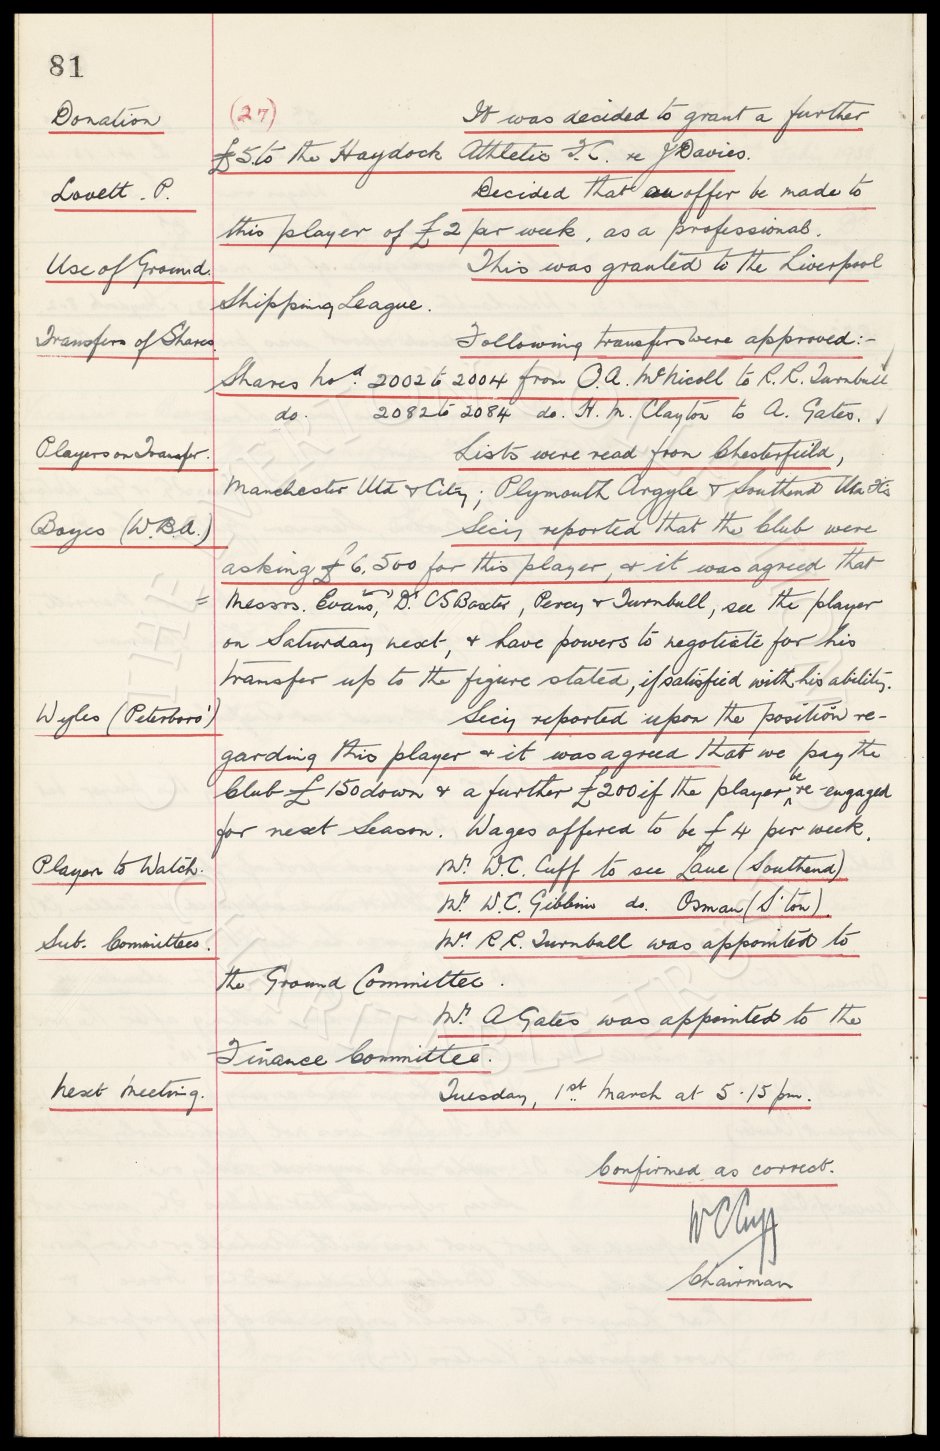 81
Donation (27) It was decided to grant a further
£5. to the Haydock Athletic F.C. re J Davies.
Lovett. P. Decided that an offer be made to
this player of £2 per week, as a professional.
Use of Ground. This was granted to the Liverpool
Shipping League.
Transfers of Shares. Following transfers were approved:-
Shares Nod. 2002 to 2004 from O.A. McNicoll to R.R. Turnbull
do. 2082 to 2084 do. H.M. Clayton to A. Gates.
Players on Transfer. Lists were read from Chesterfield,
Manchester Utd & City; Plymouth Argyle & Southend Utd
Boyes (W.B.A.) Secy reported that the Club were
asking £6,500 for this player, & it was agreed that
= Messrs. Evans, Dr. CS Baxter, Percy & Turnbull, see the player
on Saturday next, & have powers to negotiate for his
transfer up to the figure stated, if satisfied with his ability.
Wyles (Peterboro') Secy reported upon the position re-
garding this player & it was agreed that we pay the
Club £150 down & a further £200 if the player be re-engaged
for next Season. Wages offered to be £4 per week.
Player to Watch. Mr. W.C. Cuff to see Lane (Southend)
Mr. W.C. Gibbins do. Osman (S'ton).
Sub. Committees. Mr. R.R. Turnbull was appointed to
the Ground Committee.
Mr. A Gates was appointed to the
Finance Committee.
Next Meeting. Tuesday, 1st March at 5.15 pm.
Confirmed as correct.
W C Cuff
Chairman
THE EVERTON
CHARITABLE TRUST